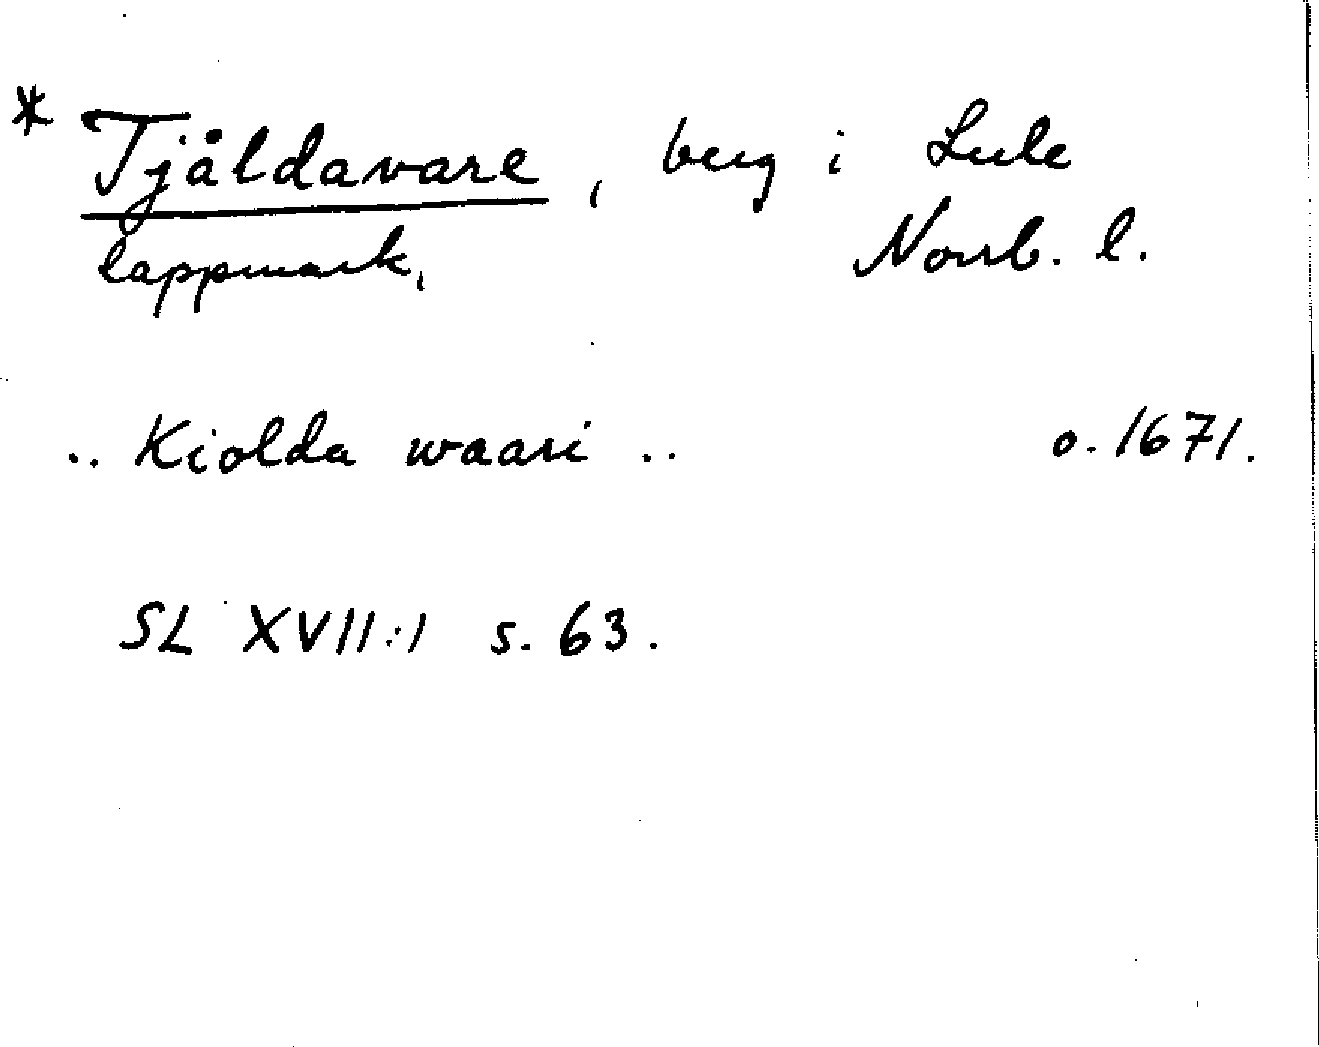 * Tjåldavare, berg i Lule
lappmark, Norrb. l.
.. Kiolda waari .. o. 1671.
SL XVII:1 s. 63.